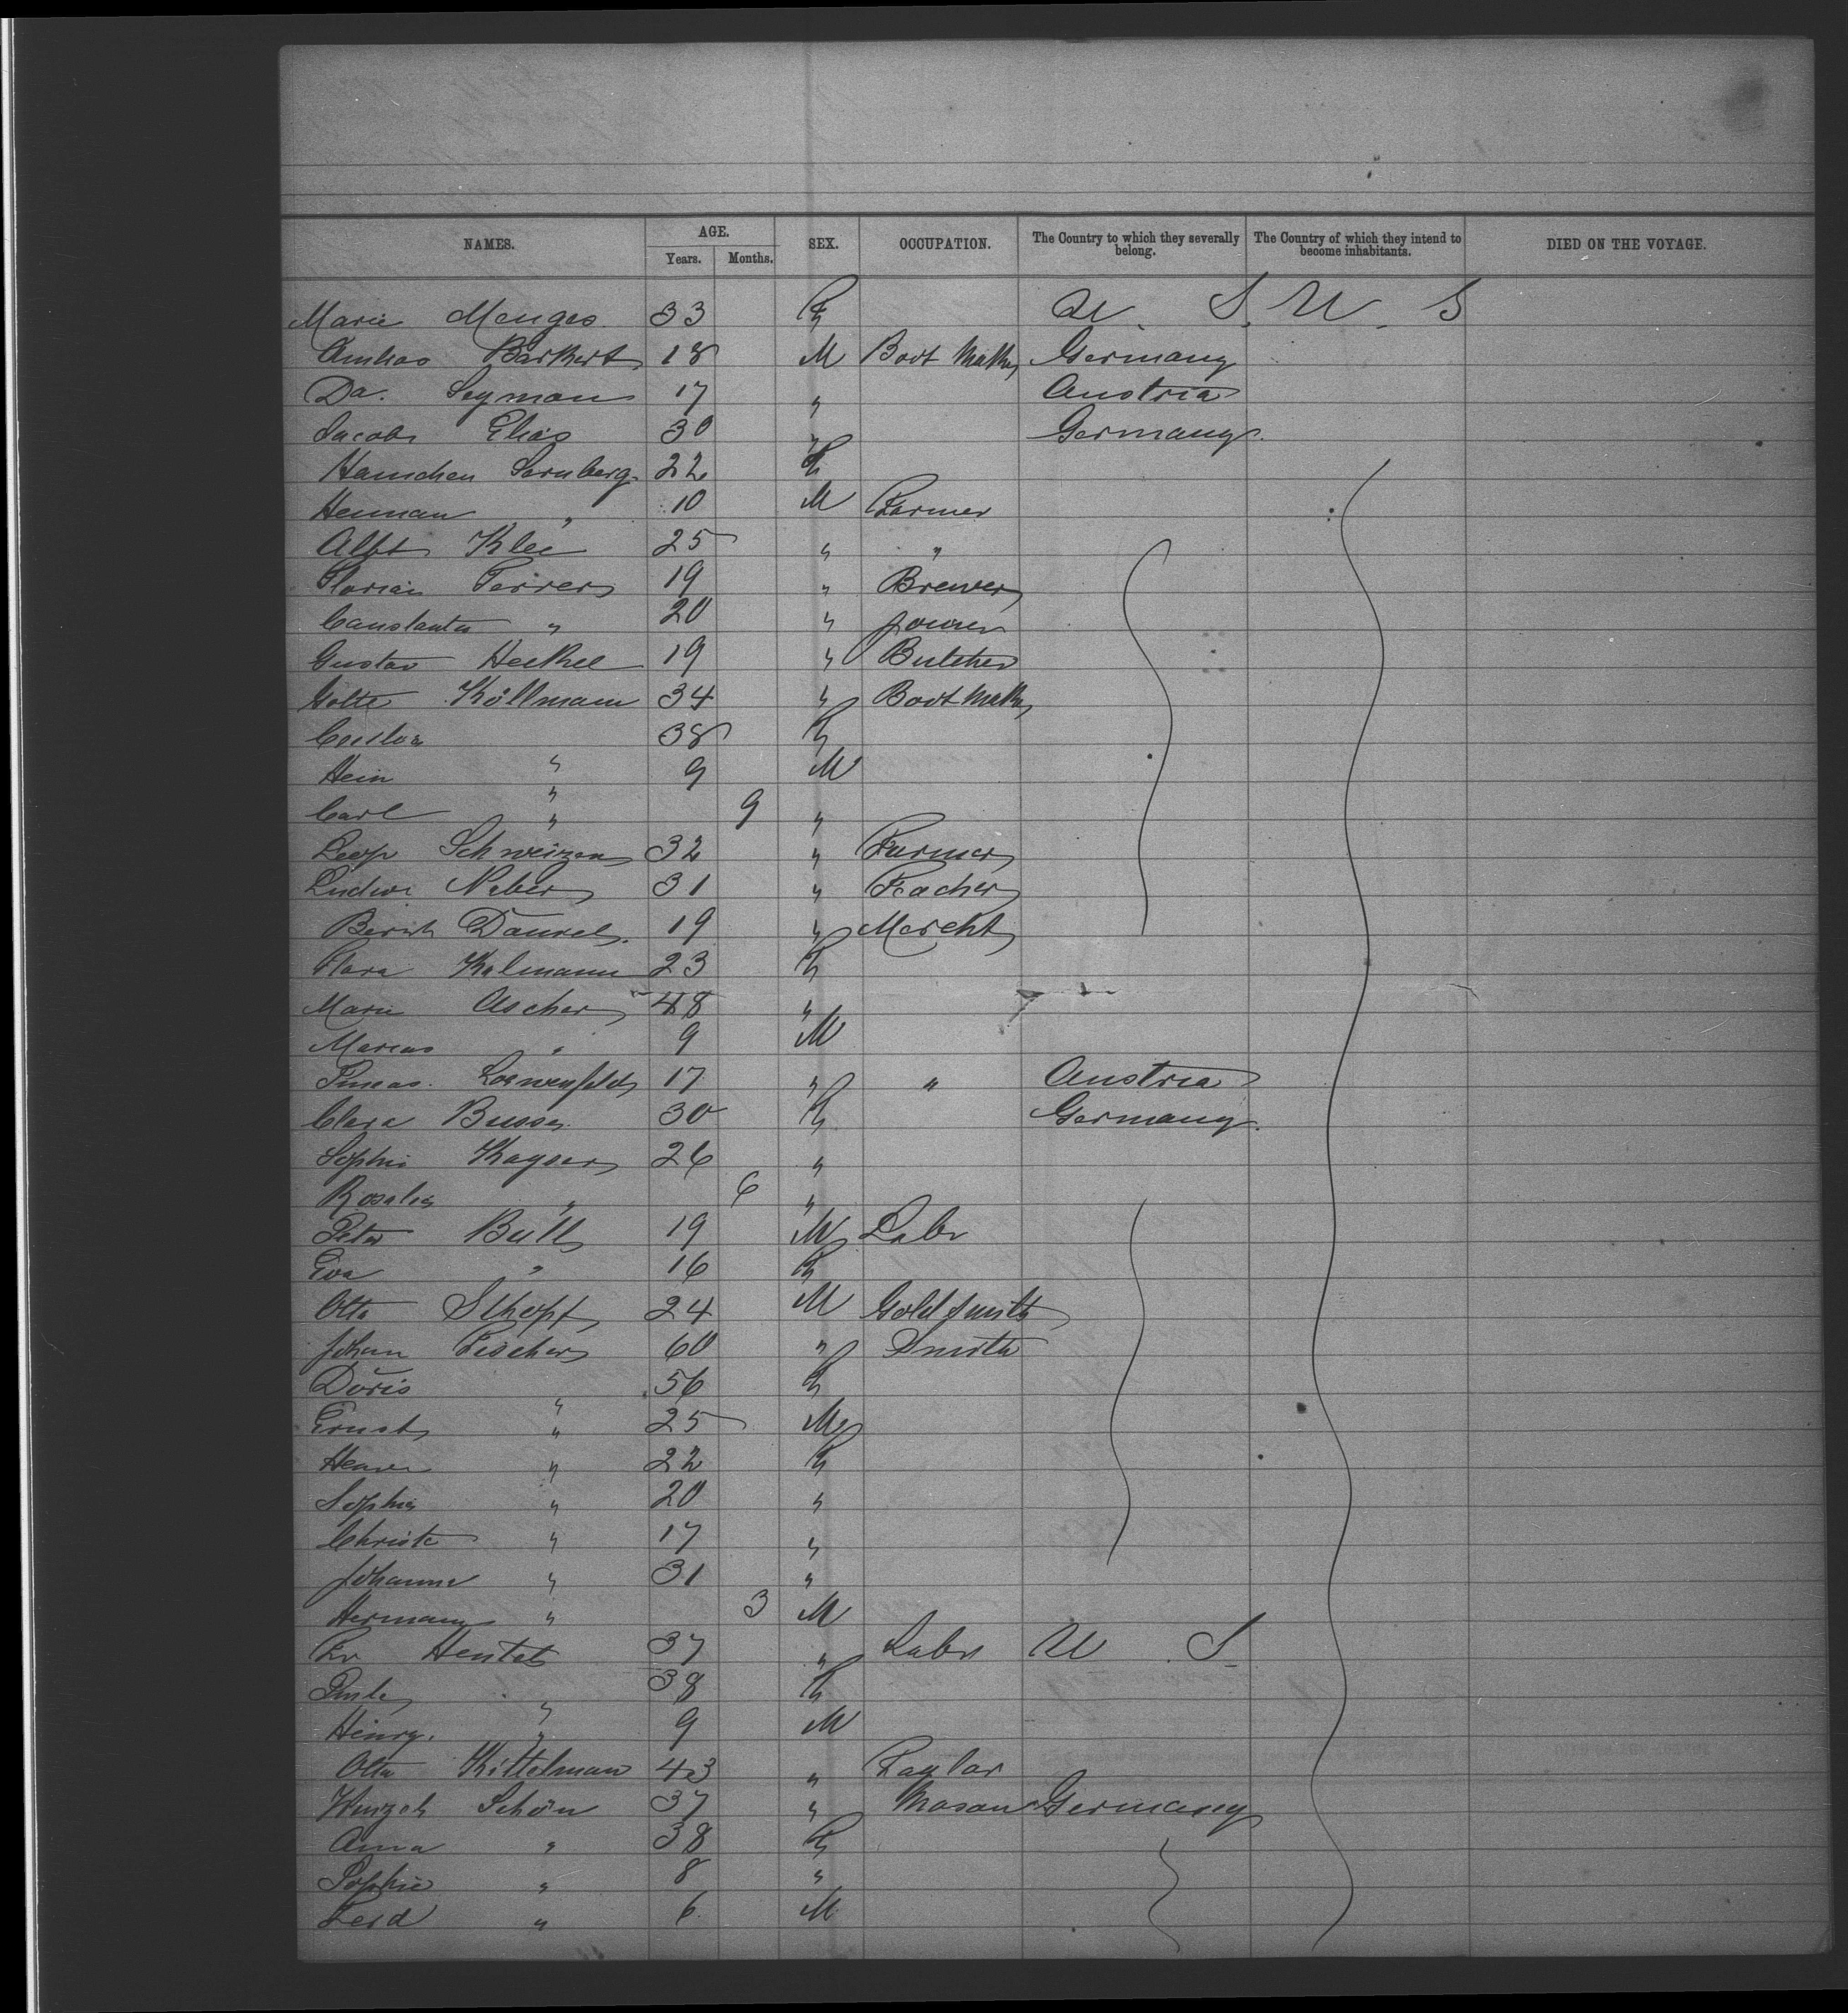 NAMES. AGE. SEX. OCCUPATION. The Country to which they severally belong. The Country of which they intend to become inhabitants. DIED ON THE VOYAGE.
Years. Months.
Marie Menges 33 F U. S. U. S
Barkert 18 M Boot Maker Germany
Da. Seyman 17 " Austria
Jacob Elias 30 " Germany
Hannchen Sternberg 22 F
Herman " 10 M Farmer
Albt Klee 25 " "
Florian Ferrer 19 " Brewer
Constantin " 20 " Joiner
Gustav Heckel 19 " Butcher
Köllmann 34 " Boot Maker
38 F
Hein " 9 M
Carl " 9 "
Leop Schweizer 32 " Farmer
Ludwi Neber 31 " Teacher
Bernh Daniel 19 " Mercht
Clara Kalmann 23 F
Marie Ascher 48 "
Marcus " 9 M
Pincas Loewenfeld 17 " " Austria
Clara Busse 30 F Germany
Sophie Kayser 26 "
Rosalie " 6 "
Peter Bull 19 M Labr
Eva " 16 F
Otto 24 M Goldsmith
Johan Fischer 60 " Smith
Doris " 56 F
Ernst " 25 M
22 F
Sophie " 20 "
Christe " 17 "
Johanne " 31 "
Hermann " 3 M
Hentel 37 " Labr U S
" 38 F
Henry. " 9 M
Otto Kittelman 43 " Taylor
Wenzel Schön 37 " Mason Germany
Anna " 38 F
Sophie " 8 "
Ferd " 6 M